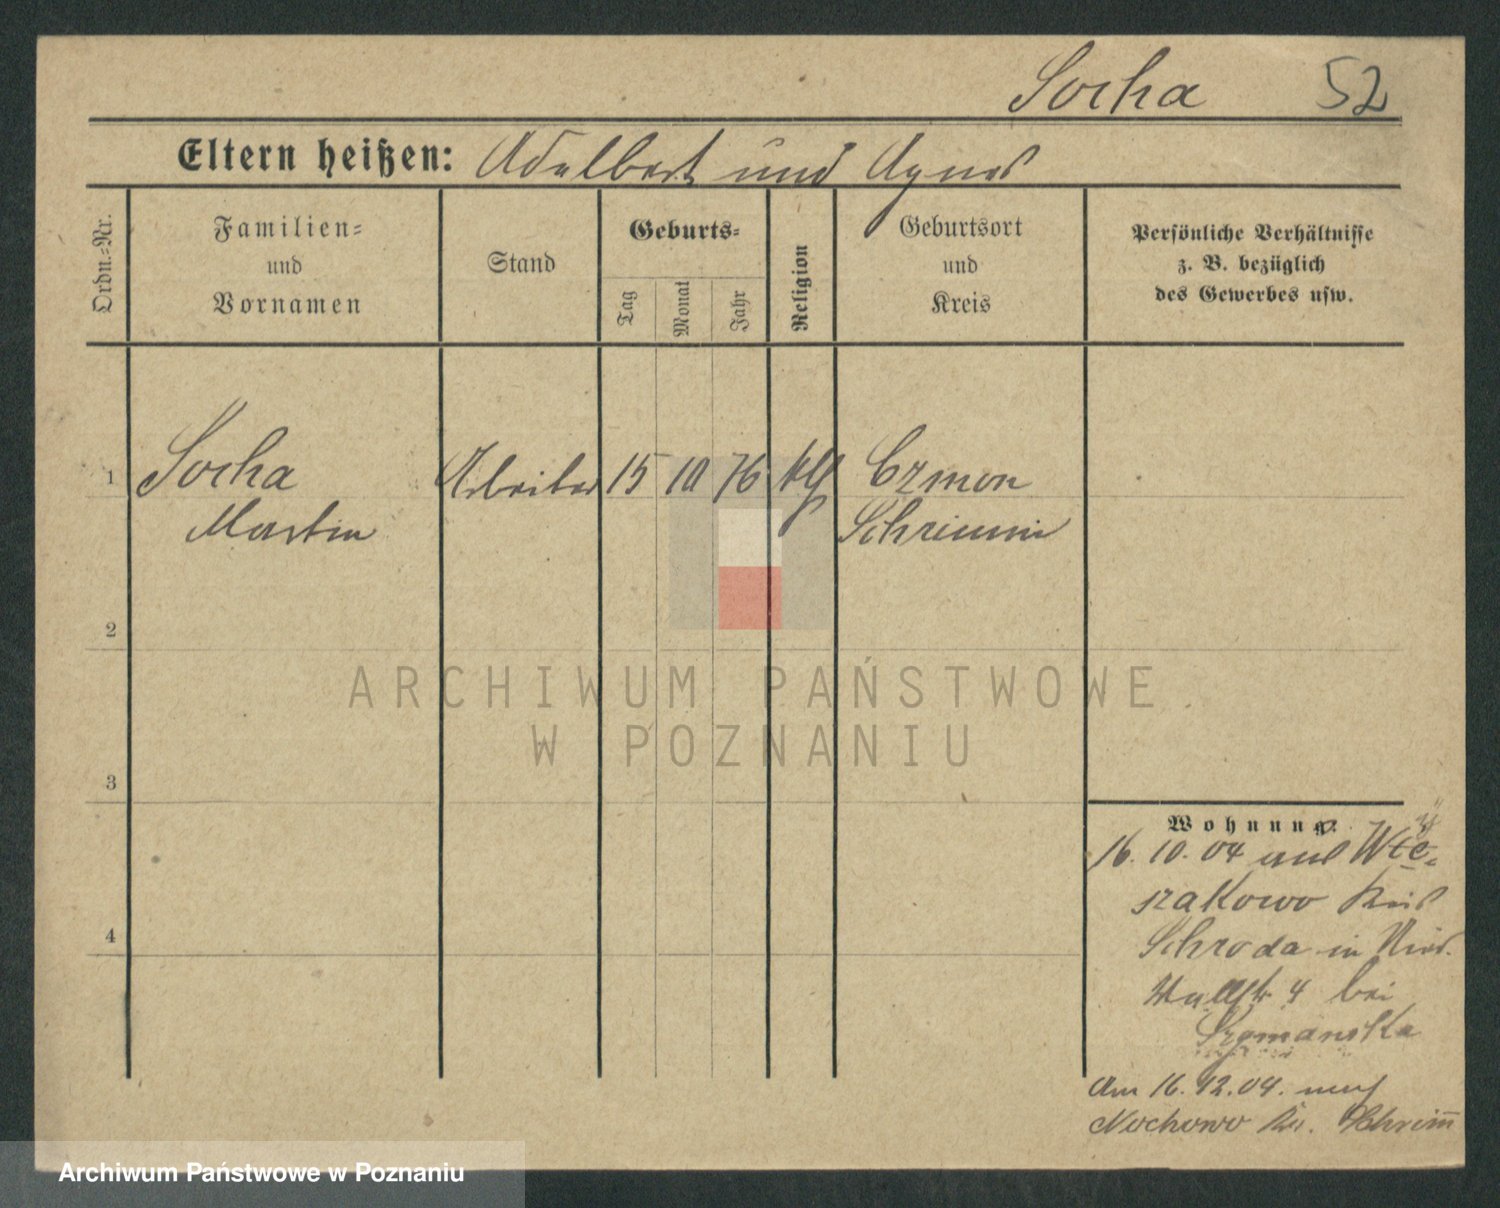 Socha 52
Eltern heißen: Adelbert und Agnes
Ordn.-Nr.
Familien-
und
Vornamen
Stand
Geburts-
Tag
Monat
Jahr
Religion
Geburtsort
und
Kreis
Persönliche Verhältnisse
z. B. bezüglich
des Gewerbes usw.
1 Socha Arbeiter 15 10 76 kth
Martin Schrimm
2
3
4
ARCHIWUM PAŃSTWOWE
W POZNANIU
Wohnung.
16. 10. 04 aus
Kreis
Schroda in
Wallstr 4 bei
Szymanska
Am 16. 12. 04. nach
Nochowo Kr. Schrimm
Archiwum Państwowe w Poznaniu